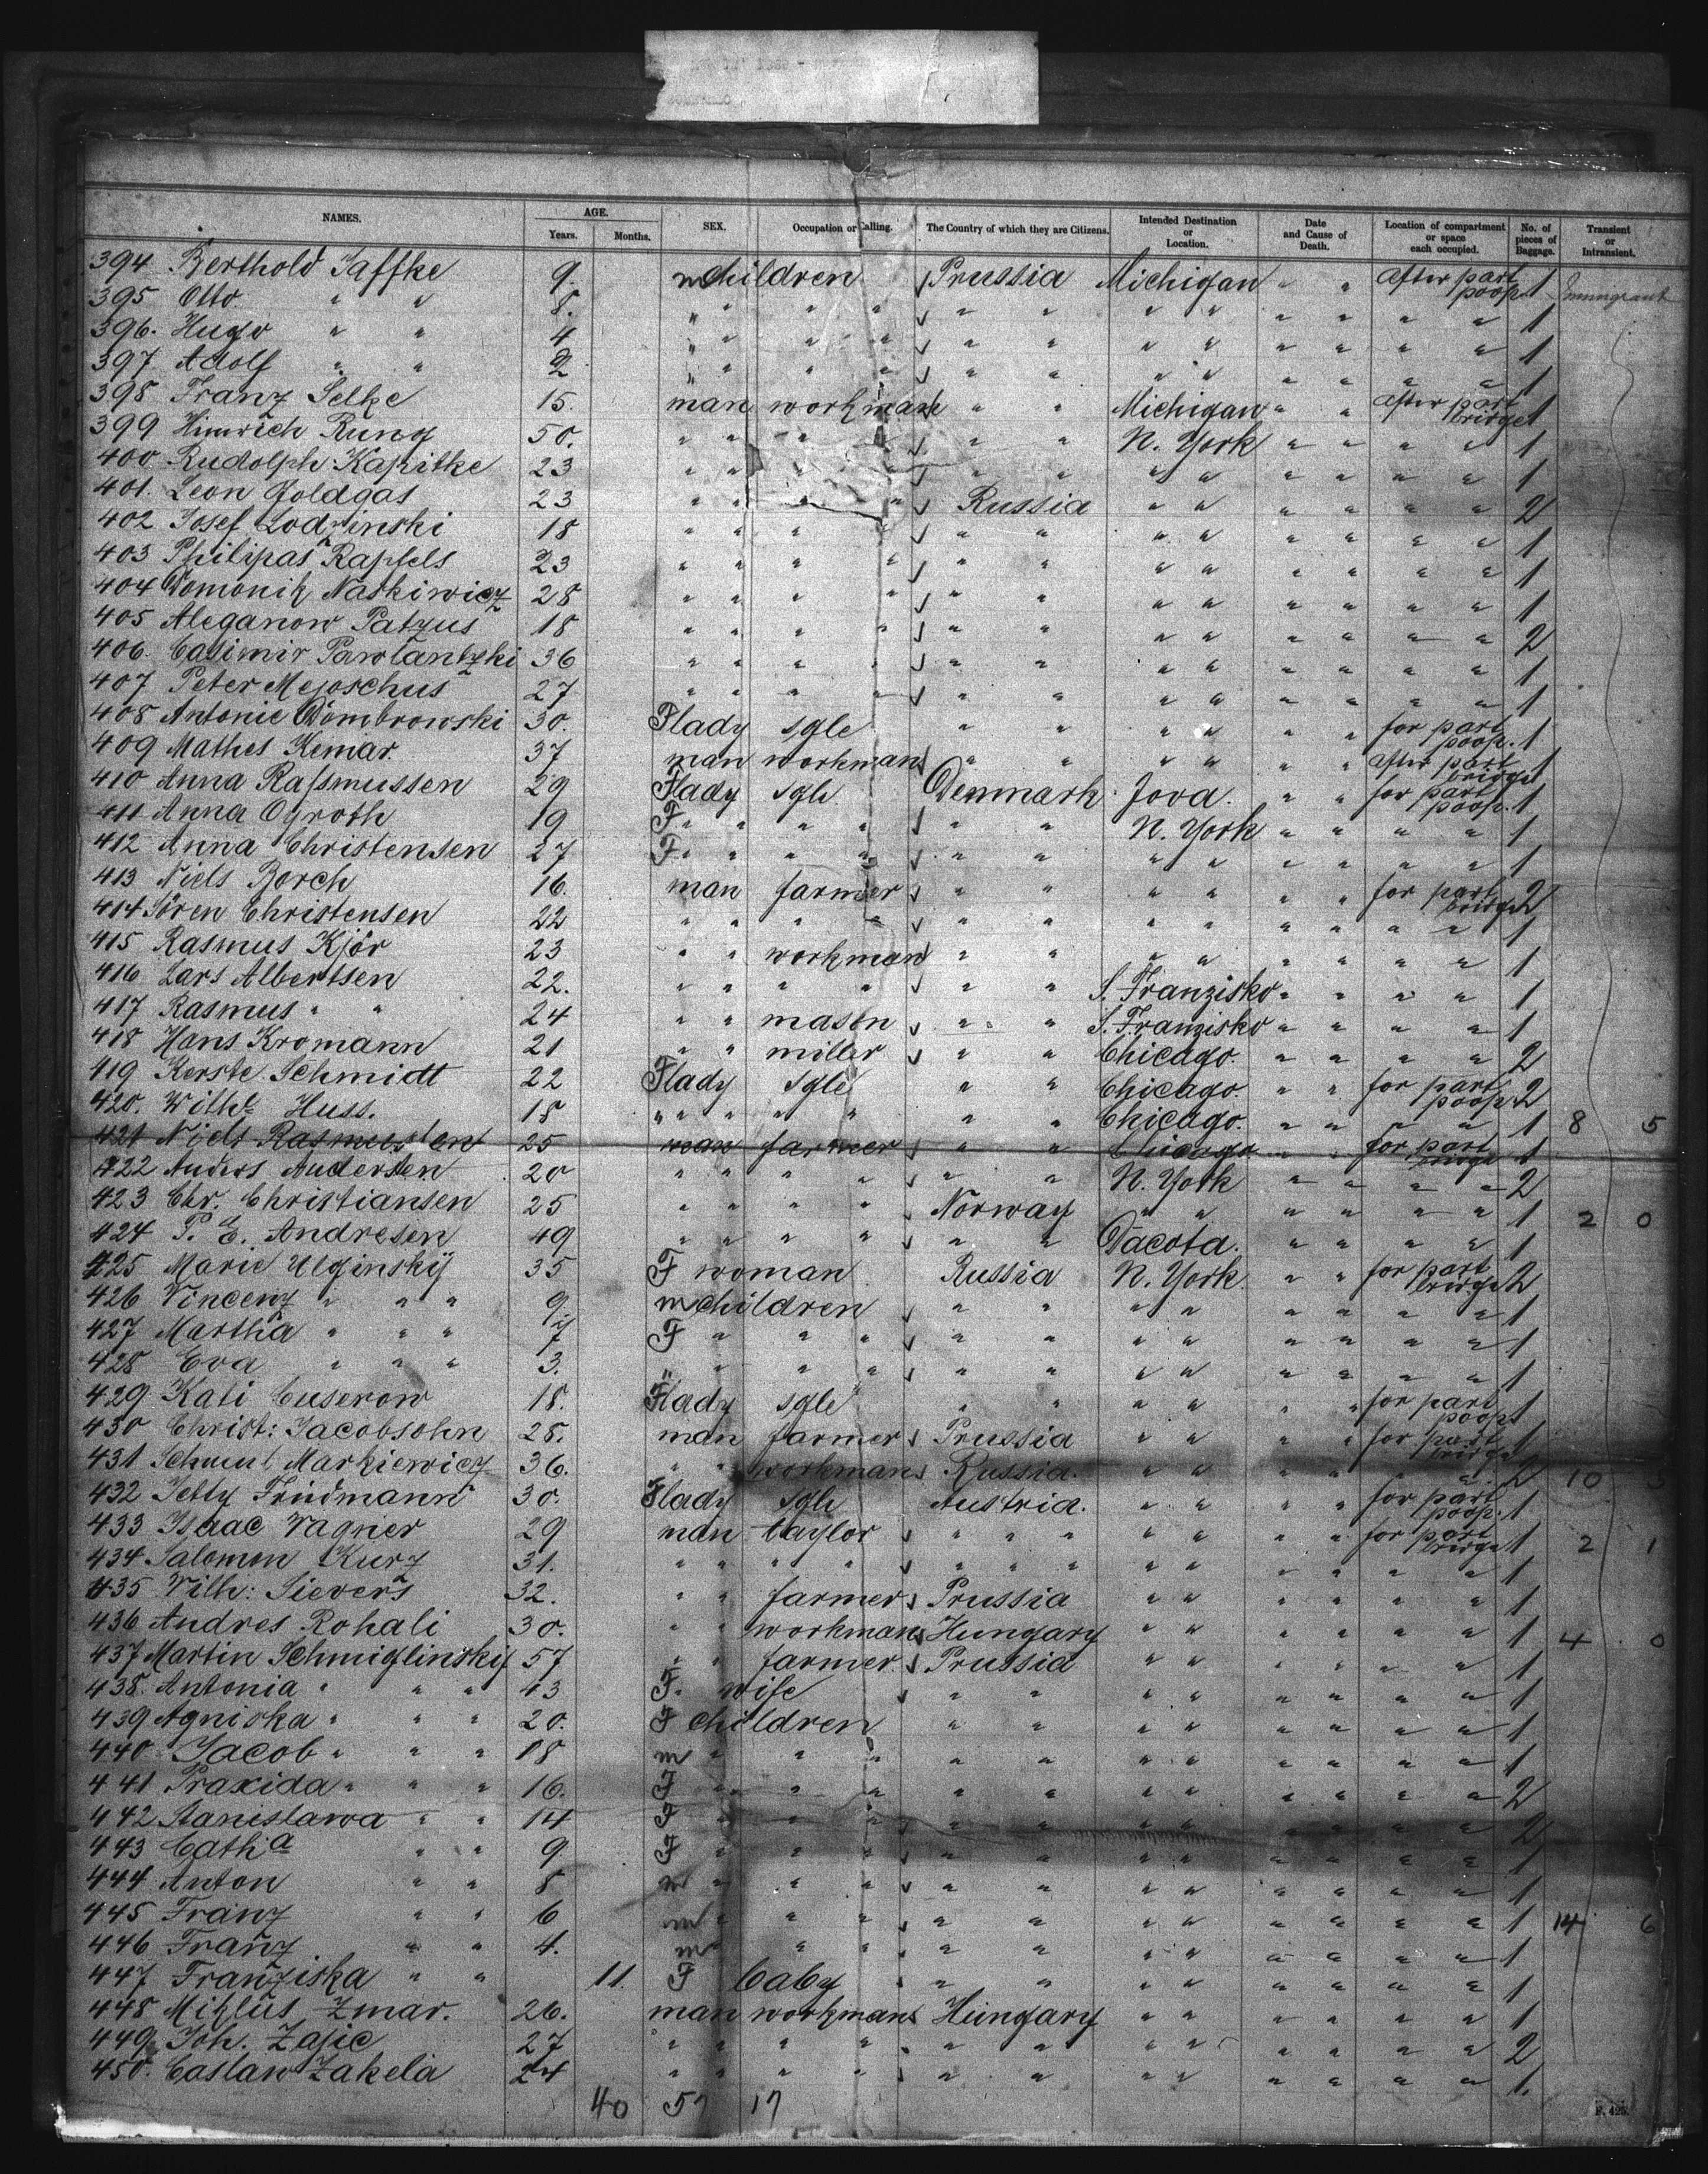 NAMES. AGE. Years. Months. SEX. Occupation or Calling. The Country of which they are Citizens. Intended Destination or Location. Date and Cause of Death. Location of compartment or space each occupied. No. of pieces of Baggage. Transient or Intransient.
394 Berthold Jaffke 9. m children Prussia Michigan " " after part poop 1 Immigrant
395 Otto " " 8. " " " " " " " " " " " " 1
396. Hugo " " 4 " " " " " " " " " " " " 1
397 Adolf " " 2 " " " " " " " " " " " " 1
398 Franz Selke 15. man workman " " Michigan " " after part bridge 1
399 Hinrich Rung 50. " " " " " N. York " " " " 1
400 Rudolph Kapitke 23 " " " " " " " " " " " 1
401. Leon Goldgas 23 " " " " Russia " " " " " " 2
402 Josef Lodzinski 18 " " " " " " " " " " " 1
403 Philipas Rapfels 23 " " " " " " " " " " " " 1
404 Domonik Naskiwicz 28 " " " " " " " " " " " " 1
405 Aleganow Patzus 18 " " " " " " " " " " " " 2
406. Casimir Pawlantzki 36 " " " " " " " " " " " " 1
407 Peter Mejoschus 27 " " " " " " " " " " " " 1
408 Antonie Dombrowski 30. F lady sgle " " " " " " for part poop. 1
409 Mathes Kemar. 37 man workman " " " " " " after part bridge 1
410 Anna Rassmussen 29 F lady sgle Denmark Jova. " " for part poop. 1
411 Anna Ogroth 19 F " " " " " " N. York " " " " 1
412 Anna Christensen 27 F " " " " " " " " " " " " 1
413 Niels Borch 16. man farmer " " " " " " for part bridge 2
414 Sören Christensen 22 " " " " " " " " " " " " 1
415 Rasmus Kjör 23 " " workman " " " " " " " " 1
416 Lars Albertsen 22. " " " " " " S. Franzisko " " " " 1
417 Rasmus " " 24 " " mason " " S. Franzisko " " " " 1
418 Hans Kromann 21 " " miller " " Chicago. " " " " 2
419 Kerste Schmidt 22 F lady sgle " " Chicago. " " for part poop. 2
420. Withe Huss. 18 " " " " " " " Chicago. " " " 1 8 5
421 Niels Rasmussen 25 man farmer " " Chicago " " for part bridge 1
422 Anders Andersen 20 " " " " " " N. York " " " " 2
423 Chr. Christiansen 25 " " " " Norway " " " " " " 1 2 0
424 P. E. Andresen 49 " " " " " " Dacota. " " " " 1
425 Marie Ulginskij 35 F woman Russia N. York " " for part bridge 2
426 Vincenz " " " 9 m children " " " " " " " " 1
427 Martha " " " 7 F " " " " " " " " " " " 1
428 Eva " " " 3. " " " " " " " " " " " " 1
429 Kati Cuserow 18. F lady sgle " " " " " " for part poop 1
430 Christ: Jacobsohn 28. man farmer Prussia " " " " for part bridge 1
431 Schmul Markiewicz 36. " " workman Russia. " " " " " 2 10
432 Jetty Friedmann 30. F lady sgle Austria. " " " " for part poop. 1
433 Isaac Wagner 29 man taylor " " " " " " " for part bridge 1 2 1
434 Salomon Kurz 31. " " " " " " " " " " " " " " 1
435 Wilh: Sievers 32. " " farmer Prussia " " " " " " 1
436 Andres Rohali 30. " " workman Hungary " " " " " " 1 4 0
437 Martin Schmiglinskij 57 " " farmer Prussia " " " " " " 1
438. Antonia " " " 43 F. wife " " " " " " " " 1
439 Agniska " " " 20. F children " " " " " " " " 1
440 Jacob " " " 18 m " " " " " " " " " " " 1
441 Praxida " " " 16. F " " " " " " " " " " " 2
442 Stanislawa " " 14 F " " " " " " " " " " " 2
443 Catha " " 9 F " " " " " " " " " " " 1
444 Anton " " 8 m " " " " " " " " " " " 1
445 Franz " " 6 m " " " " " " " " " " " 1 14 6
446 Franz " " 4. m " " " " " " " " " " 1
447 Franziska " " 11. F baby " " " " " " " " 1
448 Miklus Zmar. 26. man workman Hungary " " " " " " 1
449 Joh. Zajic 27 " " " " " " " " " " " " 2
450. Caslaw Zakela 24 " " " " " " " " " " " " 1.
40 57 17